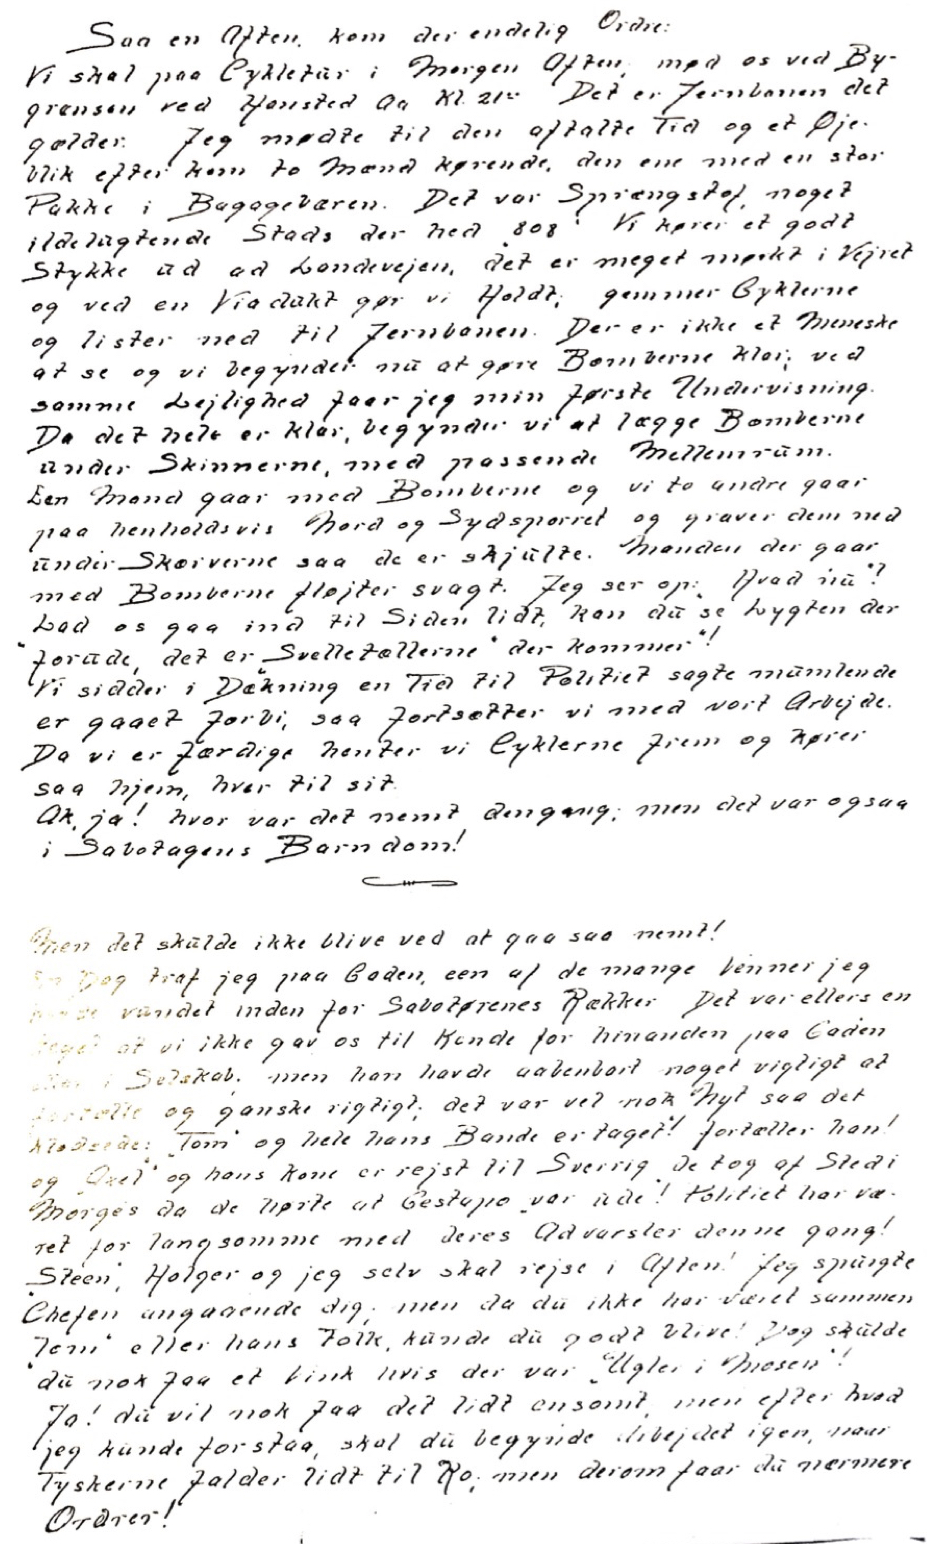 Saa en Aften, kom der endelig Ordre:
Vi skal paa Cykletur i Morgen Aften, mød os ved By-
grænsen ved Hansted Aa Kl. 21⁰⁰ Det er Jernbanen det
gælder. Jeg mødte til den aftalte Tid og et Øje-
blik efter kom to Mænd kørende, den ene med en stor
Pakke i Bagagebæren. Det var Sprængstof, noget
ildelugtende Stads der hed "808" Vi kører et godt
Stykke ud ad Landevejen, det er meget mørkt i Vejret
og ved en Viadukt gør vi Holdt, gemmer Cyklerne
og lister ned til Jernbanen. Der er ikke et Meneske
at se og vi begynder nu at gøre Bomberne klar; ved
samme Lejlighed faar jeg min første Undervisning.
Da det hele er klar, begynder vi at lægge Bomberne
under Skinnerne, med passende Mellemrum.
Een Mand gaar med Bomberne og vi to andre gaar
paa henholdsvis Nord og Sydsporret og graver dem ned
under Skærverne saa de er skjulte. Manden der gaar
med Bomberne fløjter svagt. Jeg ser op: "Hvad nu"?
Lad os gaa ind til Siden lidt, kan du se Lygten der
"forude, det er "Svelletællerne" der kommer"!
Vi sidder i Dækning en Tid til Politiet sagte mumlende
er gaaet forbi, saa fortsætter vi med vort Arbejde.
Da vi er færdige henter vi Cyklerne frem og kører
saa hjem, hver til sit.
Ak, ja! hvor var det nemt dengang; men det var ogsaa
i Sabotagens Barndom!
Men det skulde ikke blive ved at gaa saa nemt!
En Dag traf jeg paa Gaden, een af de mange Venner jeg
havde vundet inden for Sabotørenes Rækker Det var ellers en
Regel at vi ikke gav os til Kende for hinanden paa Gaden
eller i Selskab, men han havde aabenbart noget vigtigt at
fortælle og ganske rigtigt; det var vel nok Nyt saa det
klodsede: "Tom" og hele hans Bande er taget! fortæller han!
og "Axel" og hans Kone er rejst til Sverrig De tog af Sted i
Morges da de hørte at Gestapo var ude! Politiet har væ-
ret for langsomme med deres Advarsler denne gang!
"Steen", Holger og jeg selv skal rejse i Aften! Jeg spurgte
Chefen angaaende dig, men da du ikke har været sammen
"Tom" eller hans Folk, kunde du godt blive! Dog skulde
du nok faa et Vink hvis der var "Ugler i Mosen"!
Ja! du vil nok faa det lidt ensomt, men efter hvad
jeg kunde forstaa, skal du begynde Arbejdet igen, naar
Tyskerne falder lidt til Ro, men derom faar du nærmere
Ordrer!